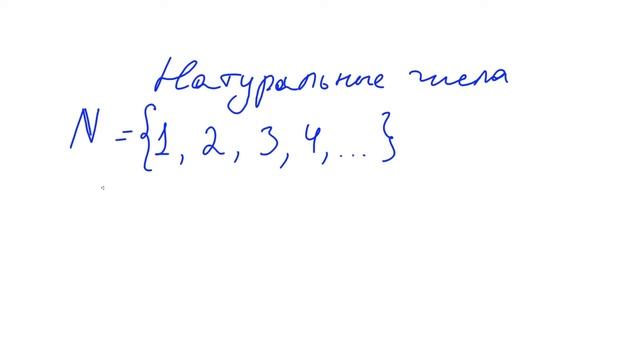 Натуральные числа
ℕ = {1, 2, 3, 4, ...}